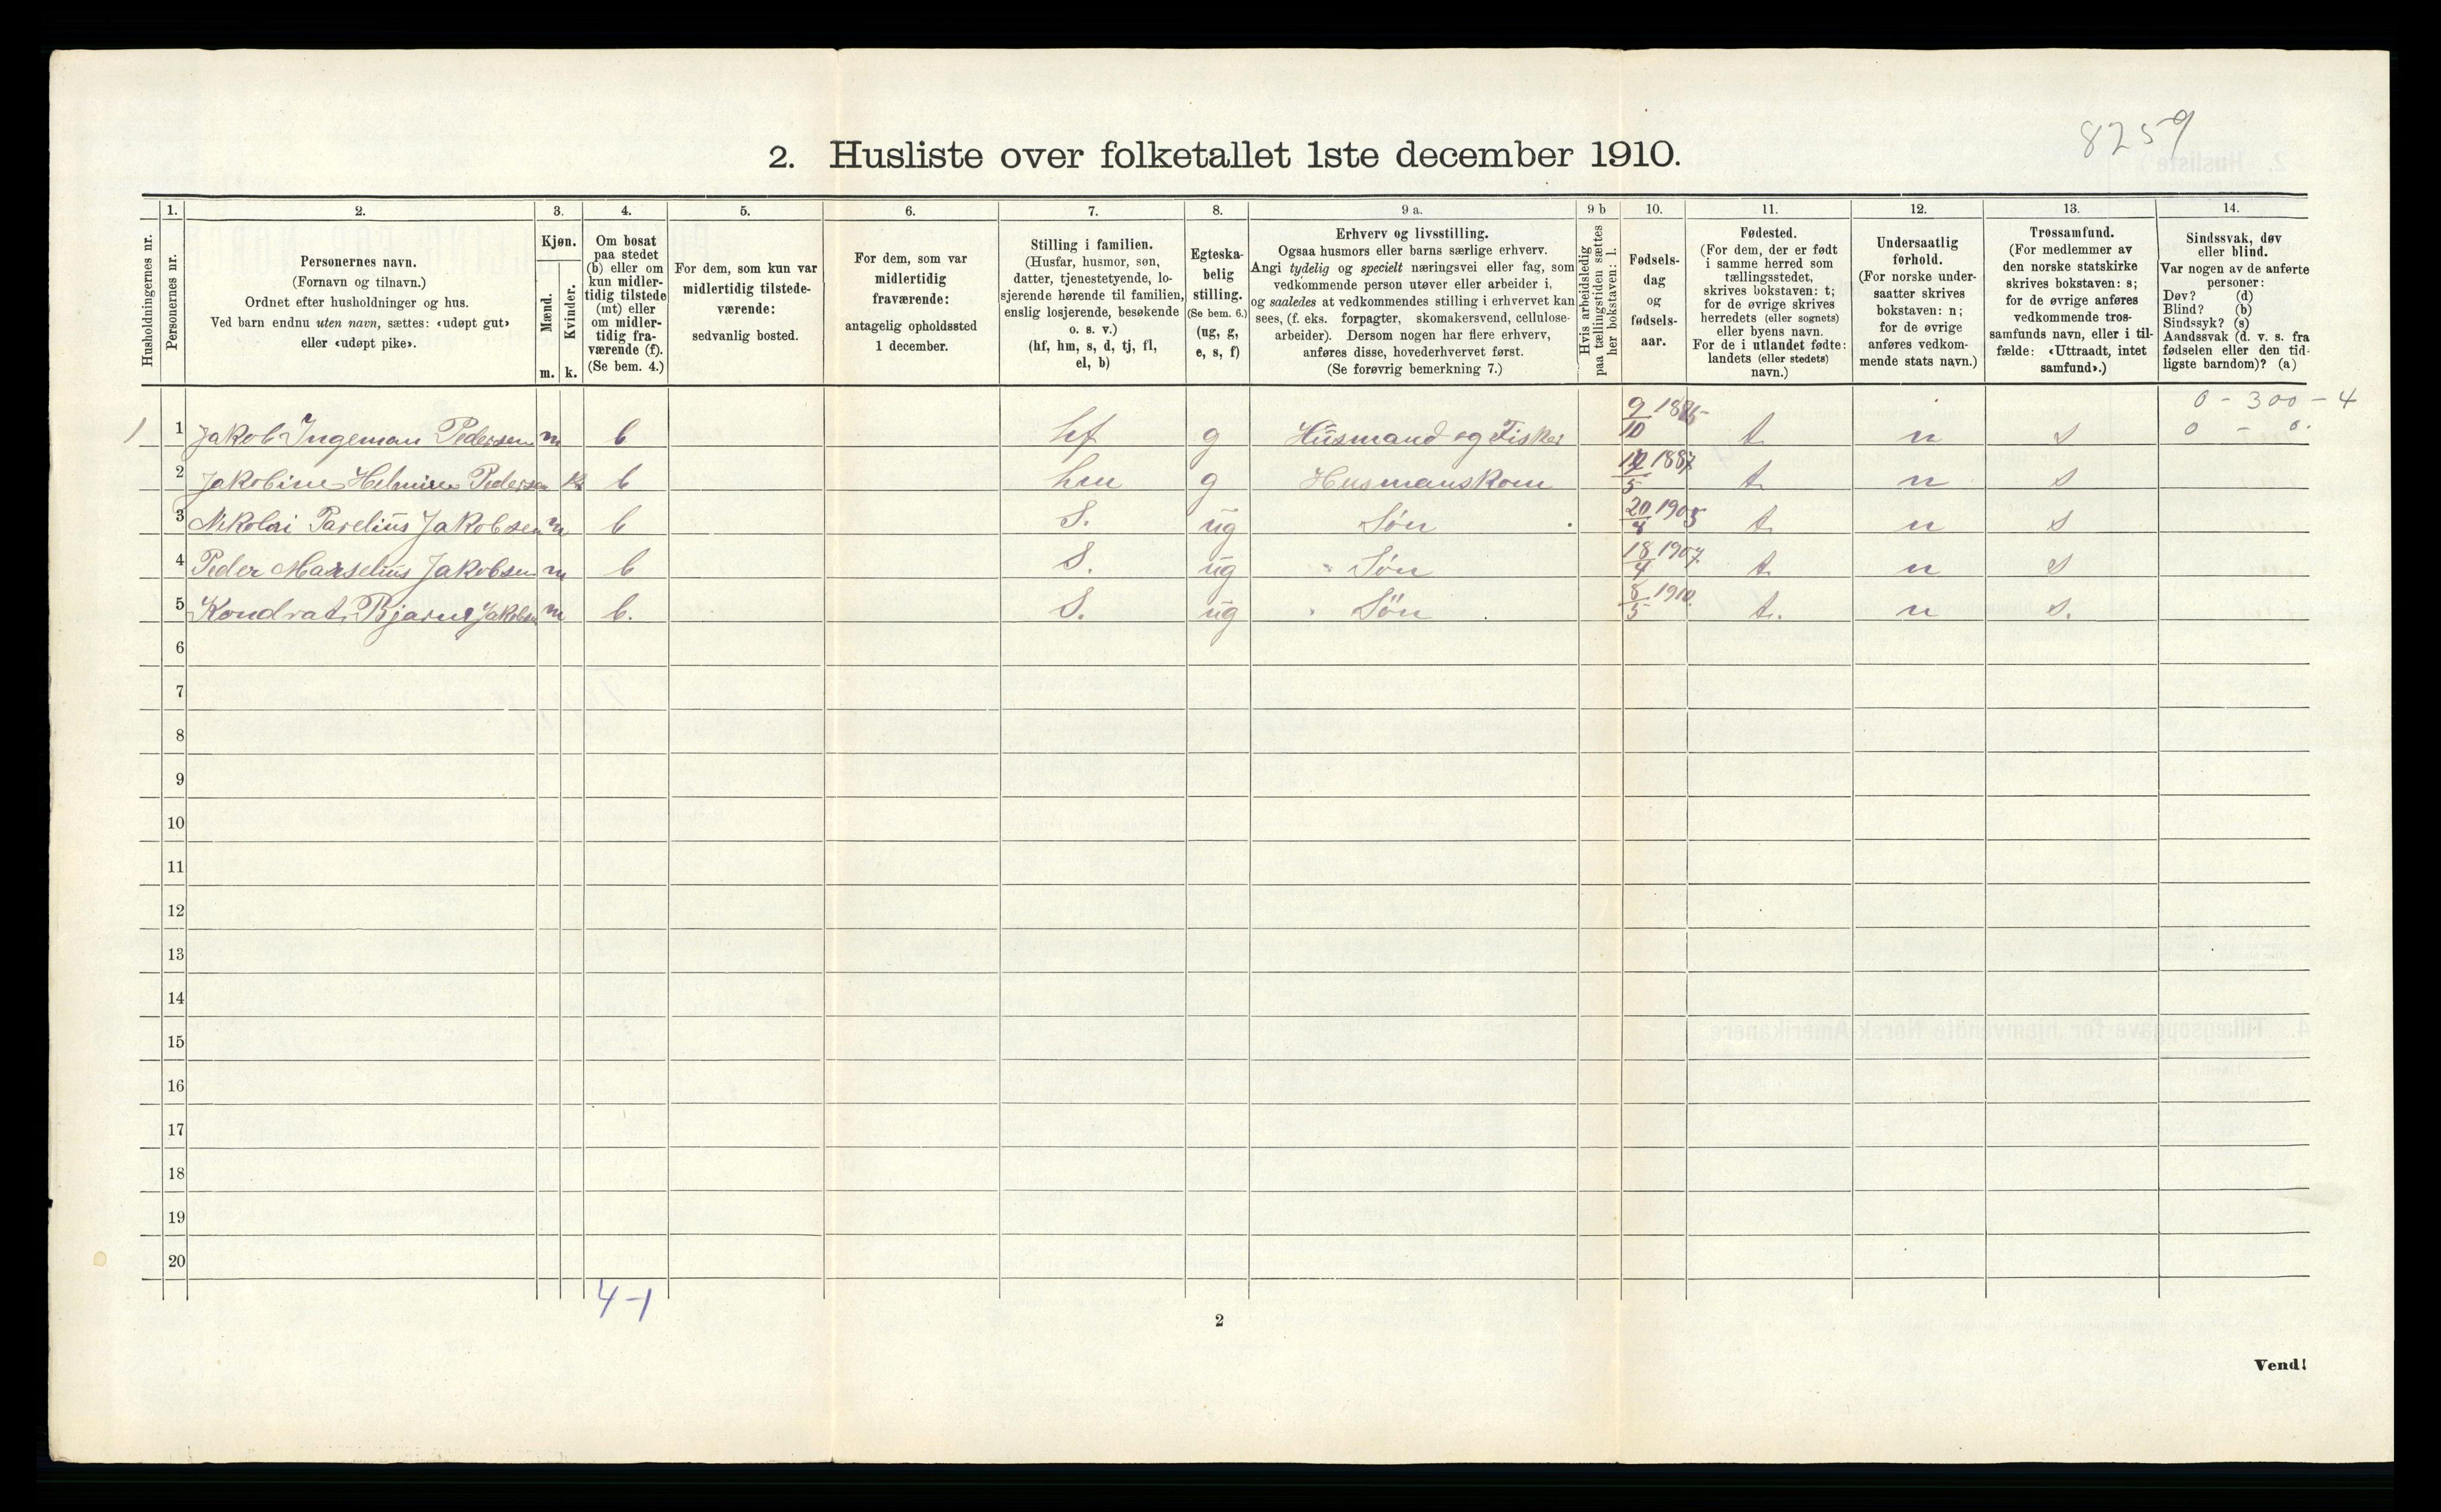 8259
2. Husliste over folketallet 1ste december 1910.
Husholdningernes nr.
1.
Personernes nr.
2.
Personernes navn.
(Fornavn og tilnavn.)
Ordnet efter husholdninger og hus.
Ved barn endnu uten navn, sættes: «udøpt gut»
eller «udøpt pike».
3.
Kjøn.
Mænd.
Kvinder.
m. k.
4.
Om bosat
paa stedet
(b) eller om
kun midler-
tidig tilstede
(mt) eller
om midler-
tidig fra-
værende (f).
(Se bem. 4.)
5.
For dem, som kun var
midlertidig tilstede-
værende:
sedvanlig bosted.
6.
For dem, som var
midlertidig
fraværende:
antagelig opholdssted
1 december.
7.
Stilling i familien.
(Husfar, husmor, søn,
datter, tjenestetyende, lo-
sjerende hørende til familien,
enslig losjerende, besøkende
o. s. v.)
(hf, hm, s, d, tj, fl,
el, b)
8.
Egteska-
belig
stilling.
(Se bem. 6.)
(ug, g,
e, s, f)
9 a.
Erhverv og livsstilling.
Ogsaa husmors eller barns særlige erhverv.
Angi tydelig og specielt næringsvei eller fag, som
vedkommende person utøver eller arbeider i,
og saaledes at vedkommendes stilling i erhvervet kan
sees, (f. eks. forpagter, skomakersvend, cellulose-
arbeider). Dersom nogen har flere erhverv,
anføres disse, hovederhvervet først.
(Se forøvrig bemerkning 7.)
9 b
Hvis arbeidsledig
paa tællingstiden sættes
her bokstaven: l.
10.
Fødsels-
dag
og
fødsels-
aar.
11.
Fødested.
(For dem, der er født
i samme herred som
tællingsstedet,
skrives bokstaven: t;
for de øvrige skrives
herredets (eller sognets)
eller byens navn.
For de i utlandet fødte:
landets (eller stedets)
navn.)
12.
Undersaatlig
forhold.
(For norske under-
saatter skrives
bokstaven: n;
for de øvrige
anføres vedkom-
mende stats navn.)
13.
Trossamfund.
(For medlemmer av
den norske statskirke
skrives bokstaven: s;
for de øvrige anføres
vedkommende tros-
samfunds navn, eller i til-
fælde: «Uttraadt, intet
samfund».)
14.
Sindssvak, døv
eller blind.
Var nogen av de anførte
personer:
Døv? (d)
Blind? (b)
Sindssyk? (s)
Aandssvak (d. v. s. fra
fødselen eller den tid-
ligste barndom)? (a)
0 - 300 - 4
0 - 0.
1 1 Jakob Ingeman Pedersen m b hf g Husmand og Fisker 9/10 t. n s
2 Jakobine Helmine Pedersen k b hm g Husmanskom 5 1887 t. n s
3 Nikolai Parelius Jakobsen m b S. ug Søn 20 1905 t. n s
4 Peder Marselius Jakobsen m b S. ug " Søn 18/4 1907. t. n s
5 Kondrat Bjarne Jakobsen m b. S. ug " Søn 8/5 1910. t. n s.
6
7
8
9
10
11
12
13
14
15
16
17
18
19
20
4-1
2
Vend!